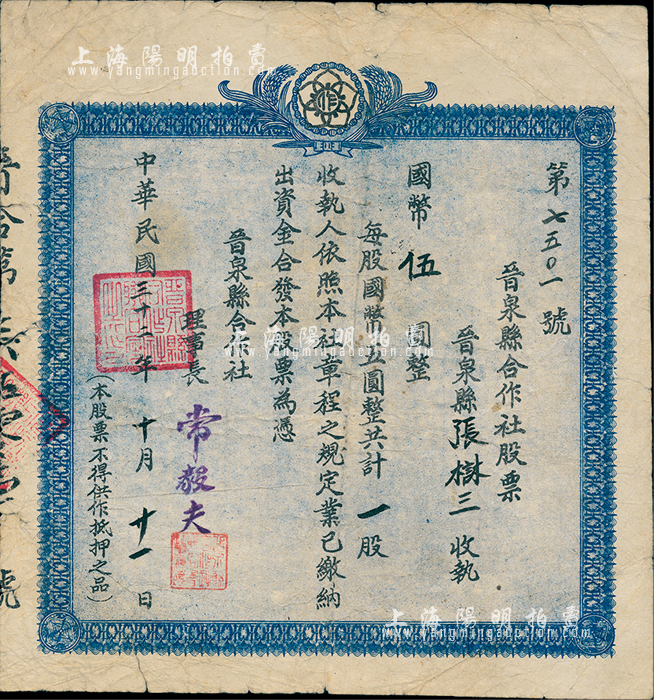 上海陽明拍賣
www.yangmingauction.com
第七五〇一號
晉泉縣合作社股票
晉泉縣張樾三收執
國幣伍圓整
每股國幣五圓整共計一股
收執人依照本社章程之規定業已繳納
出資金合發本股票為憑
晉泉縣合作社
理事長常毅夫
中華民國三十二年十月廿一日
(本股票不得供作抵押之品)
上海陽明拍賣
www.yangmingauction.com